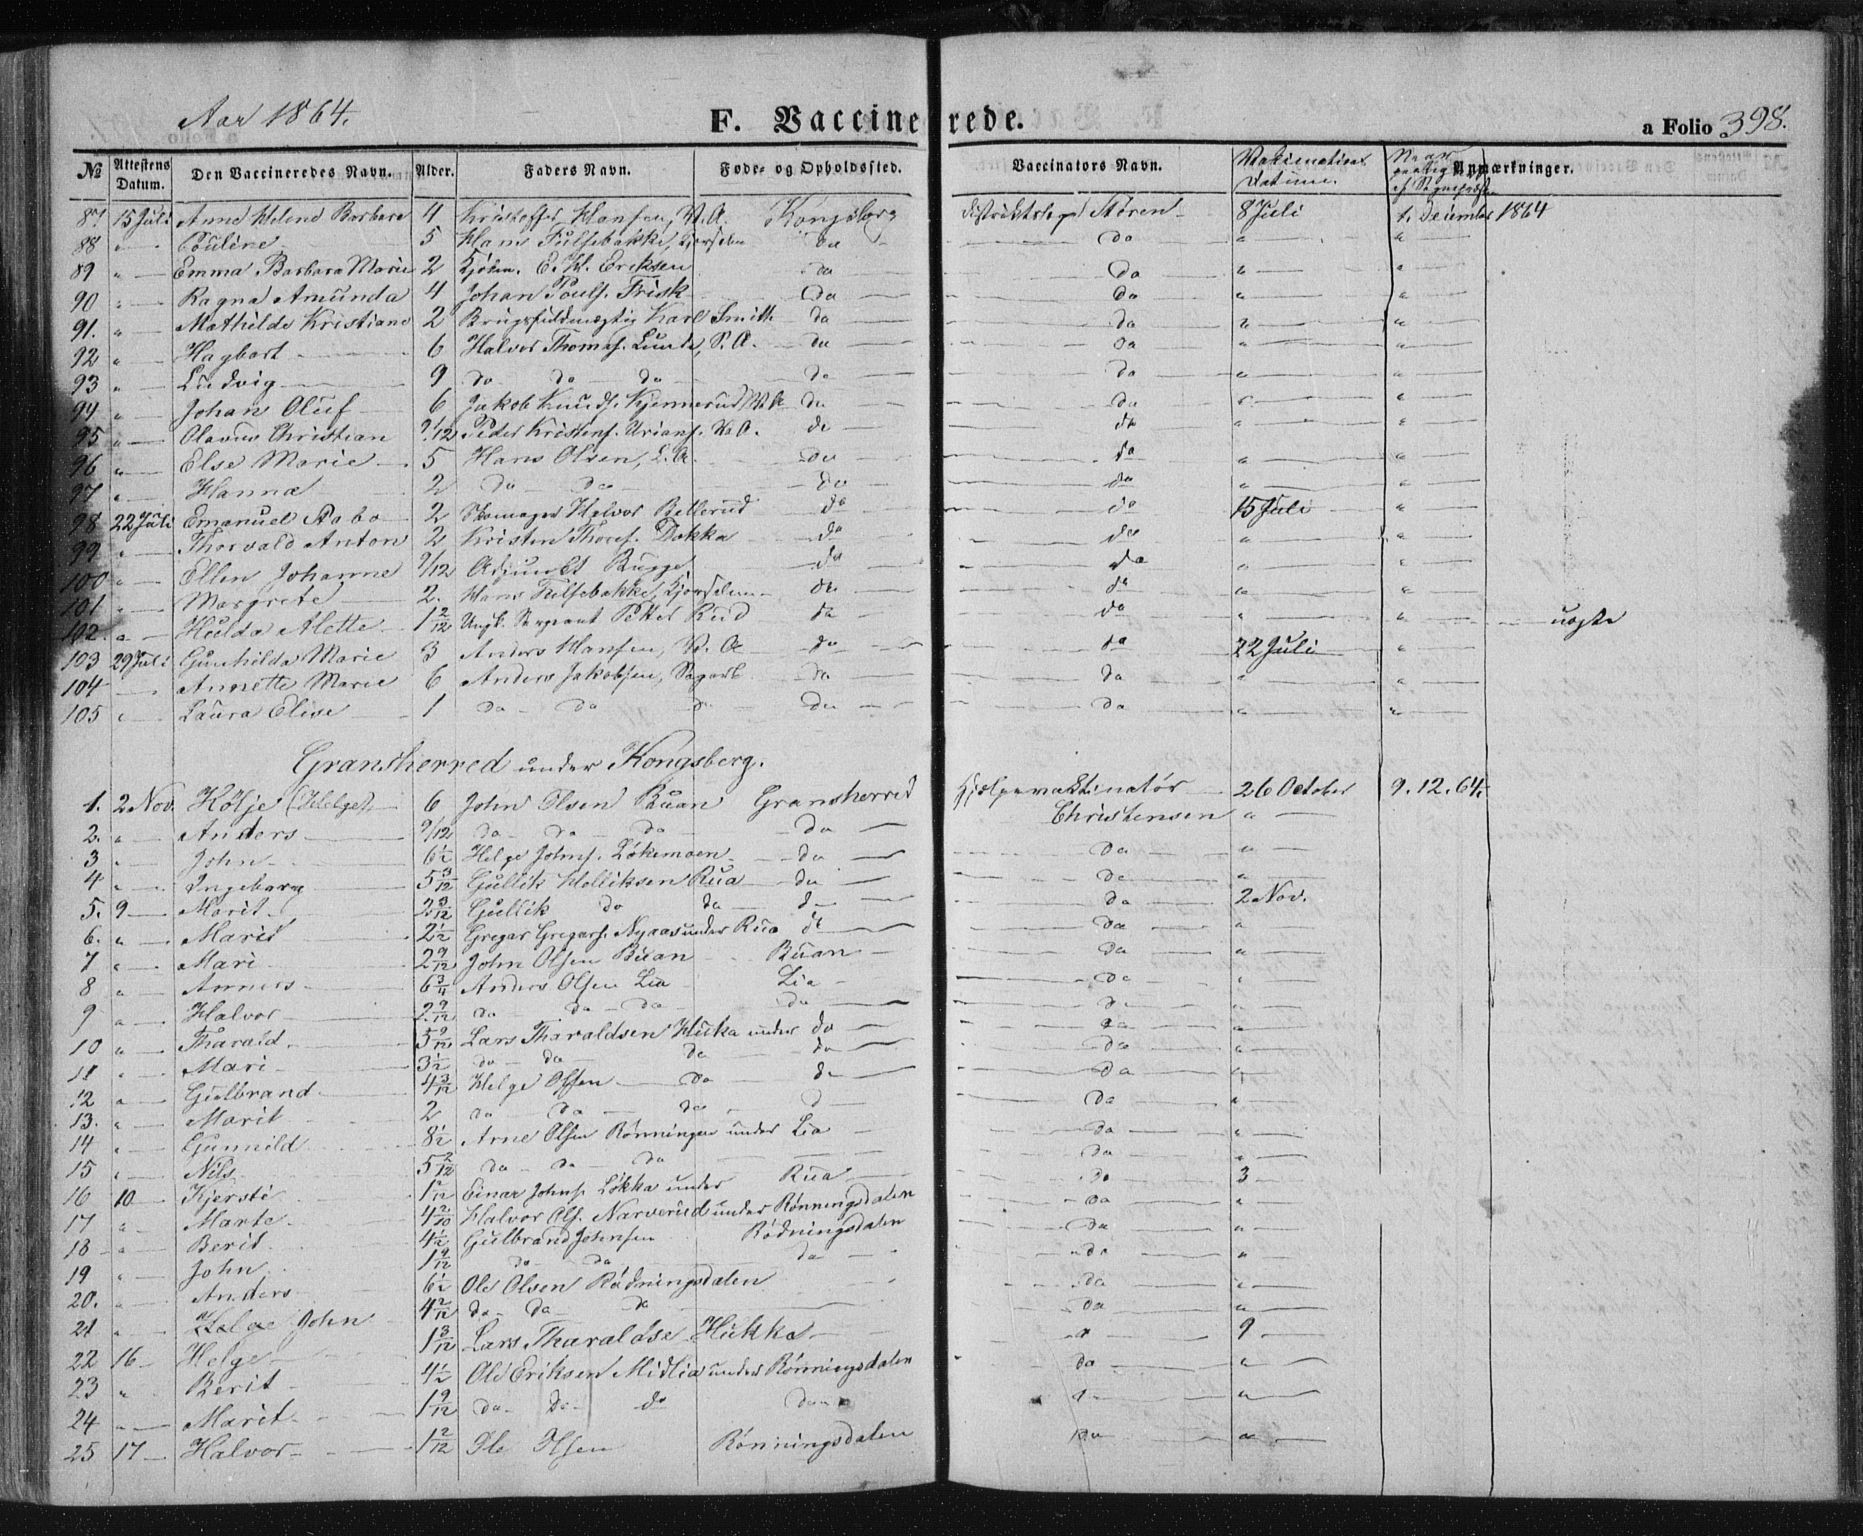 Aar 1864.
F. Vaccinerede.
a Folio 398.
№ Attestens Datum. Den Vaccineredes Navn. Alder. Faders Navn. Føde- og Opholdssted. Vaccinators Navn. Vakcinations Datum. Anmærkninger.
87 15 Juli Anne Helene Barbara 4 Kristoffer Hansen, W. A. Kongsberg Distriktslæge Støren 8 Juli 1. December 1864
88 " Pouline 5 Hans Fulsebakke, do do " "
89 " Emma Barbara Marie 2 E. H. Eriksen do do " "
90 " Ragna Amunda 4 Johan Pouls. Frisk do do " "
91. " Mathilde Kristiane 2 Brugsfuldmægtig Karl Smith do do " "
92 " Hagbart 6 Halvor Thomas. Lunde, S. A. do do " "
93 " Ludvig 9 do do do do do " "
94 " Johan Oluf 6 Jakob Knuds. Kjennerud do do " "
95 " Olavus Christian 9/12 Peder Kristens. do do " "
96 " Else Marie 5 Hans Olsen, do do " "
97 " Hanna 2 do do do do " "
98 22 Juli Emanuel 2 Skomager Halvor Bellerud do do 15 Juli "
99 " Thorvald Anton 2 Kristen Thores. Dokka do do " "
100 " Ellen Johanne 9/12 Adjunkt Bugge do do " "
101 " Margrete 2. Hans Fulsebakke, do do " "
102. " Hulda Alette 1 2/12 Ungk. Sergeant Petter Rud do do " " uægte
103 29 Juli Gunhilda Marie 3 Anders Hansen, do do 22 Juli "
104 " Annette Marie 6 Anders Jakobsen, Sagarb. do do " "
105 " Laura Elise 1 do do do do do " "
Gransherred under Kongsberg.
1. 2 Nov. Hølje (Helge) 6 John Olsen Buan Gransherred Hjælpevaktinatør 26 October 9.12.64.
2. " Anders 9/12 do do do do Christensen "
3 " John 6 1/2 Helge Johns. Løkemoen do do "
4 " Ingeborg 5 3/12 Gullik Hølliksen Rua do do "
5. 9 Marit 2 3/12 Gullik do do do do 2 Nov.
6. " Marit 2 1/2 Gregar Gregars. Nyaas under Rua do do "
7 " Mari 2 9/12 John Olsen Buan Buan do "
8 " Anners 6 3/4 Anders Olsen Lia Lia do "
9 " Halvor 2 9/12 do do do do do "
10 " Tharald 5 9/12 Lars Tharaldsen Hukka under do do "
11 " Mari 3 1/2 do do do do do "
12 " Gulbrand 4 3/12 Helge Olsen do do do "
13. " Marit 2 do do do do do "
14 " Gunnild 8 1/2 Arne Olsen Rønningen under Lia do "
15 " Nils 5 2/12 do do do do "
16 10 Kjersti 1 2/12 Einar Johns. Løkka under Rua do 3
17 " Marte 4 2/10 Halvor Ols. Narverud under Rønningsdalen do "
18 " Berit 4 1/2 Gulbrand Johnsen Rødningsdalen do "
19 " John 1 9/12 do do do do "
20. " Anders 6 1/2 Ole Olsen Rødningsdalen do "
21 " Helge John 4 2/12 do do do do "
22 16 Helge 1 3/12 Lars Tharaldse Hukka " 9
23 " Berit 4 1/2 Ole Eriksen Midlia under Rønningsdalen do "
24 " Marit 1 9/12 do do do do " "
25 17 Halvor 1 2/12 Ole Olsen Rønningsdalen do "